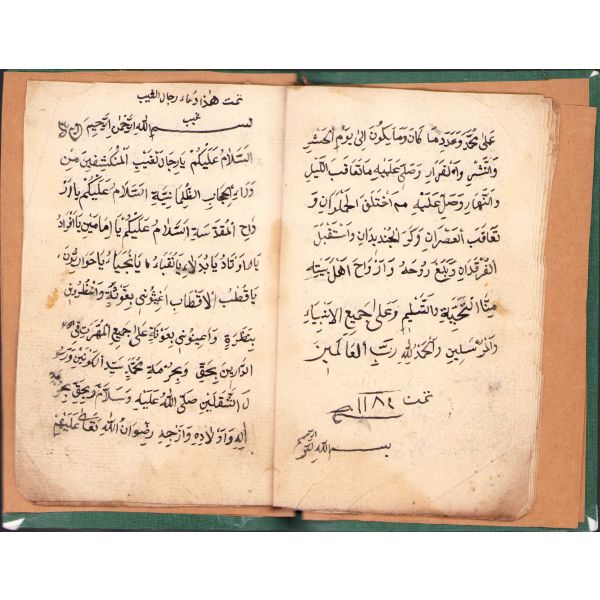 على محمد وعدد ما كان وما يكون الى يوم الحشر
والنشر والقرار وصل عليه ما تعاقب الليل
والنهار وصل عليه ما اختلف الملوان و
تعاقب العصران وكر الجديدان واستقبل
الفرقدان وبلغ روحه وارواح اهل بيته
منا التحية والتسليم وعلى جميع الانبياء
والمرسلين والحمد لله رب العالمين
تمت
١١٨٤
بسم الله الرحمن
تمت هذا دعاء رجال الغيب
بسم الله الرحمن الرحيم
السلام عليكم يا رجال الغيب المنكشفين من
وراء الحجاب الظلمانية السلام عليكم يا ار
واح المقدسة السلام عليكم يا امامين يا افراد
يا اوتاد يا بدلاء يا نقباء يا نجباء يا حواريون
يا قطب الاقطاب اغيثونى بغوثة وانظرونى
بنظرة واعينونى بعونة على جميع المهمات فى
الدارين بحق وبحرمة محمد سيد الكونين ورسو
ل الثقلين صلى الله عليه وسلام وبحق
اله واولاده وازوجه رضوان الله تعالى عليهم